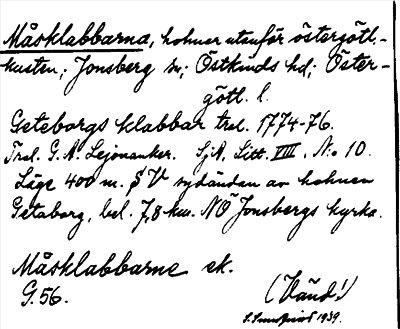 Måsklabbarna, holmar utanför östergötl.-
kusten; Jonsberg sn; Östkinds hd; Öster-
götl. l.
Geteborgs klabbar trol. 1774-76.
Trol. G. A. Lejonanker. SjA, Litt. VIII, No 10.
Läge 400 m. SV sydändan av holmen
Getaborg, bel. 7,8 km. NO Jonsbergs kyrka.
Måsklabbarne ek.
G. 56.
(Vänd!)
1939.